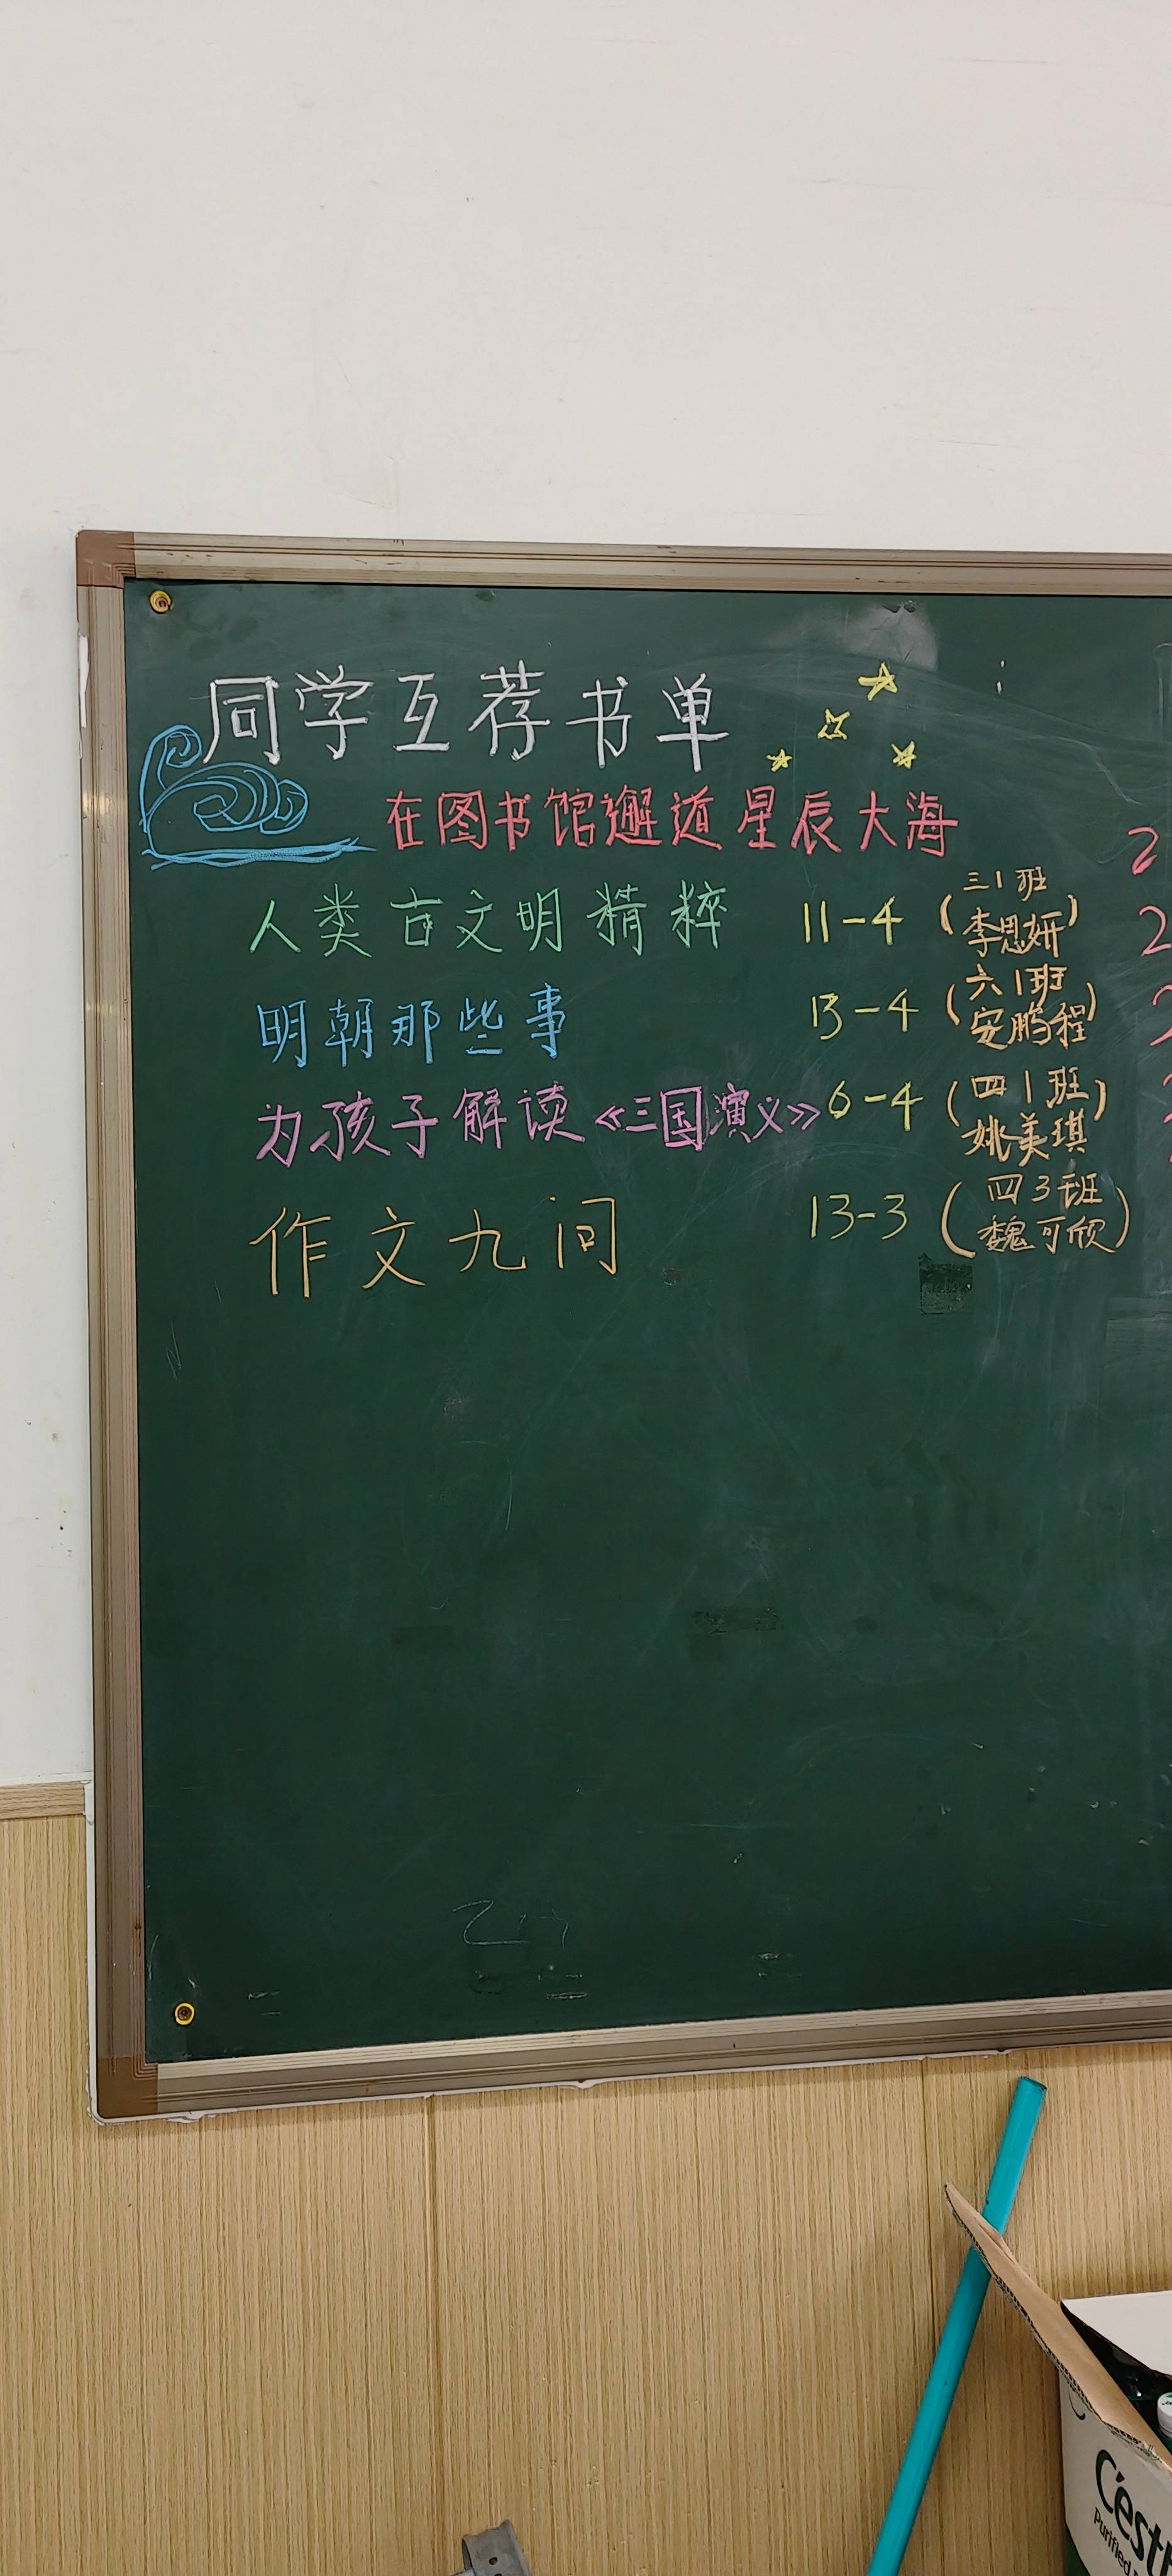 同学互荐书单
在图书馆邂逅星辰大海
人类古文明精粹 11-4 (三1班 李思妍)
明朝那些事 13-4 (六1班 安鹏程)
为孩子解读《三国演义》 6-4 (四1班 姚美琪)
作文九问 13-3 (四3班 魏可欣)
Cest
Purified